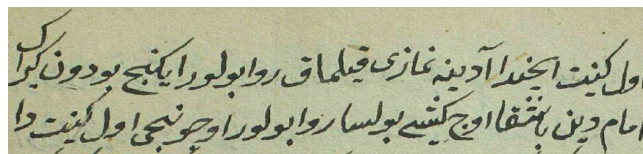 اول كينت ايچندا آدينه نمازى قيلماق روا بولور ايكنچ بودون كيراك
امام دين باشقا اوچ كيشى بولسا روا بولور اوچونچى اول كينت دا